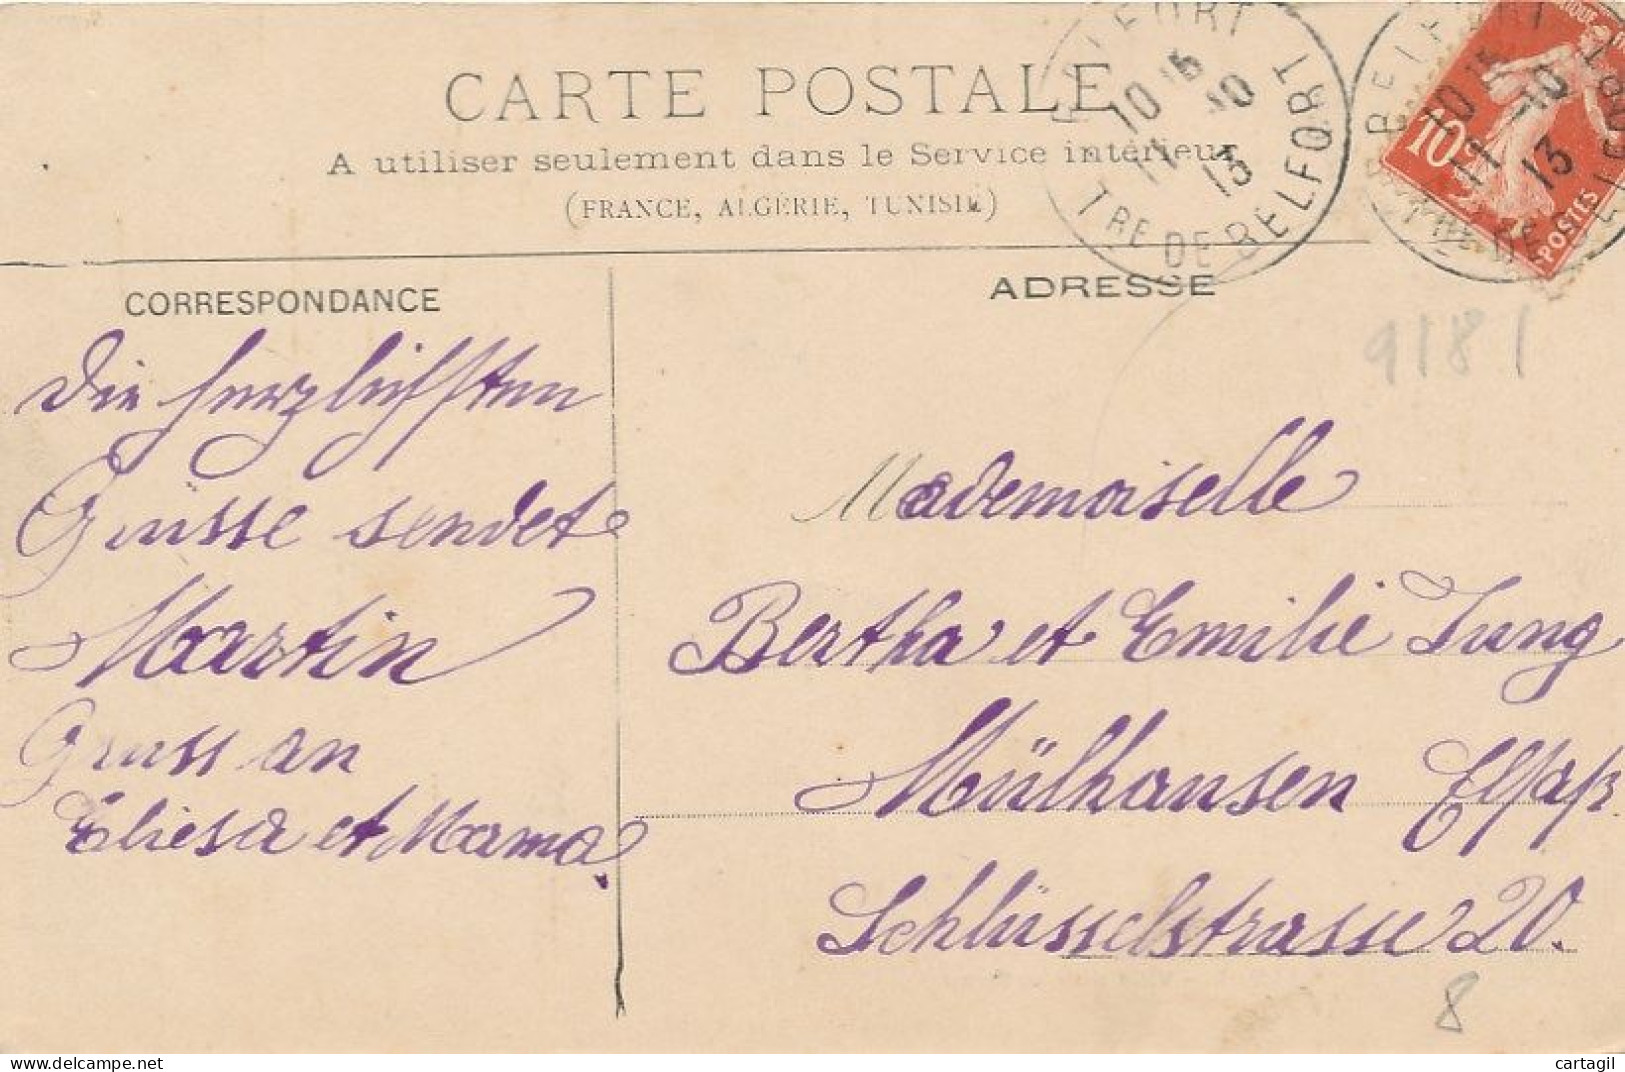 CARTE POSTALE
A utiliser seulement dans le Service intérieur
(FRANCE, ALGÉRIE, TUNISIE)
BELFORT
10 15
11 -10
13
TRE DE BELFORT
BELFORT
10 15
11 -10
13
10c
POSTES
CORRESPONDANCE
ADRESSE
9181
Die herzlichsten
Grüsse sendet
Martin
Gruss an
Eliesa et Mama.
Mademoiselle
Bertha et Emilie Jung
Mülhausen Elsaß
Schlüsselstrasse 20.
8
cartagil